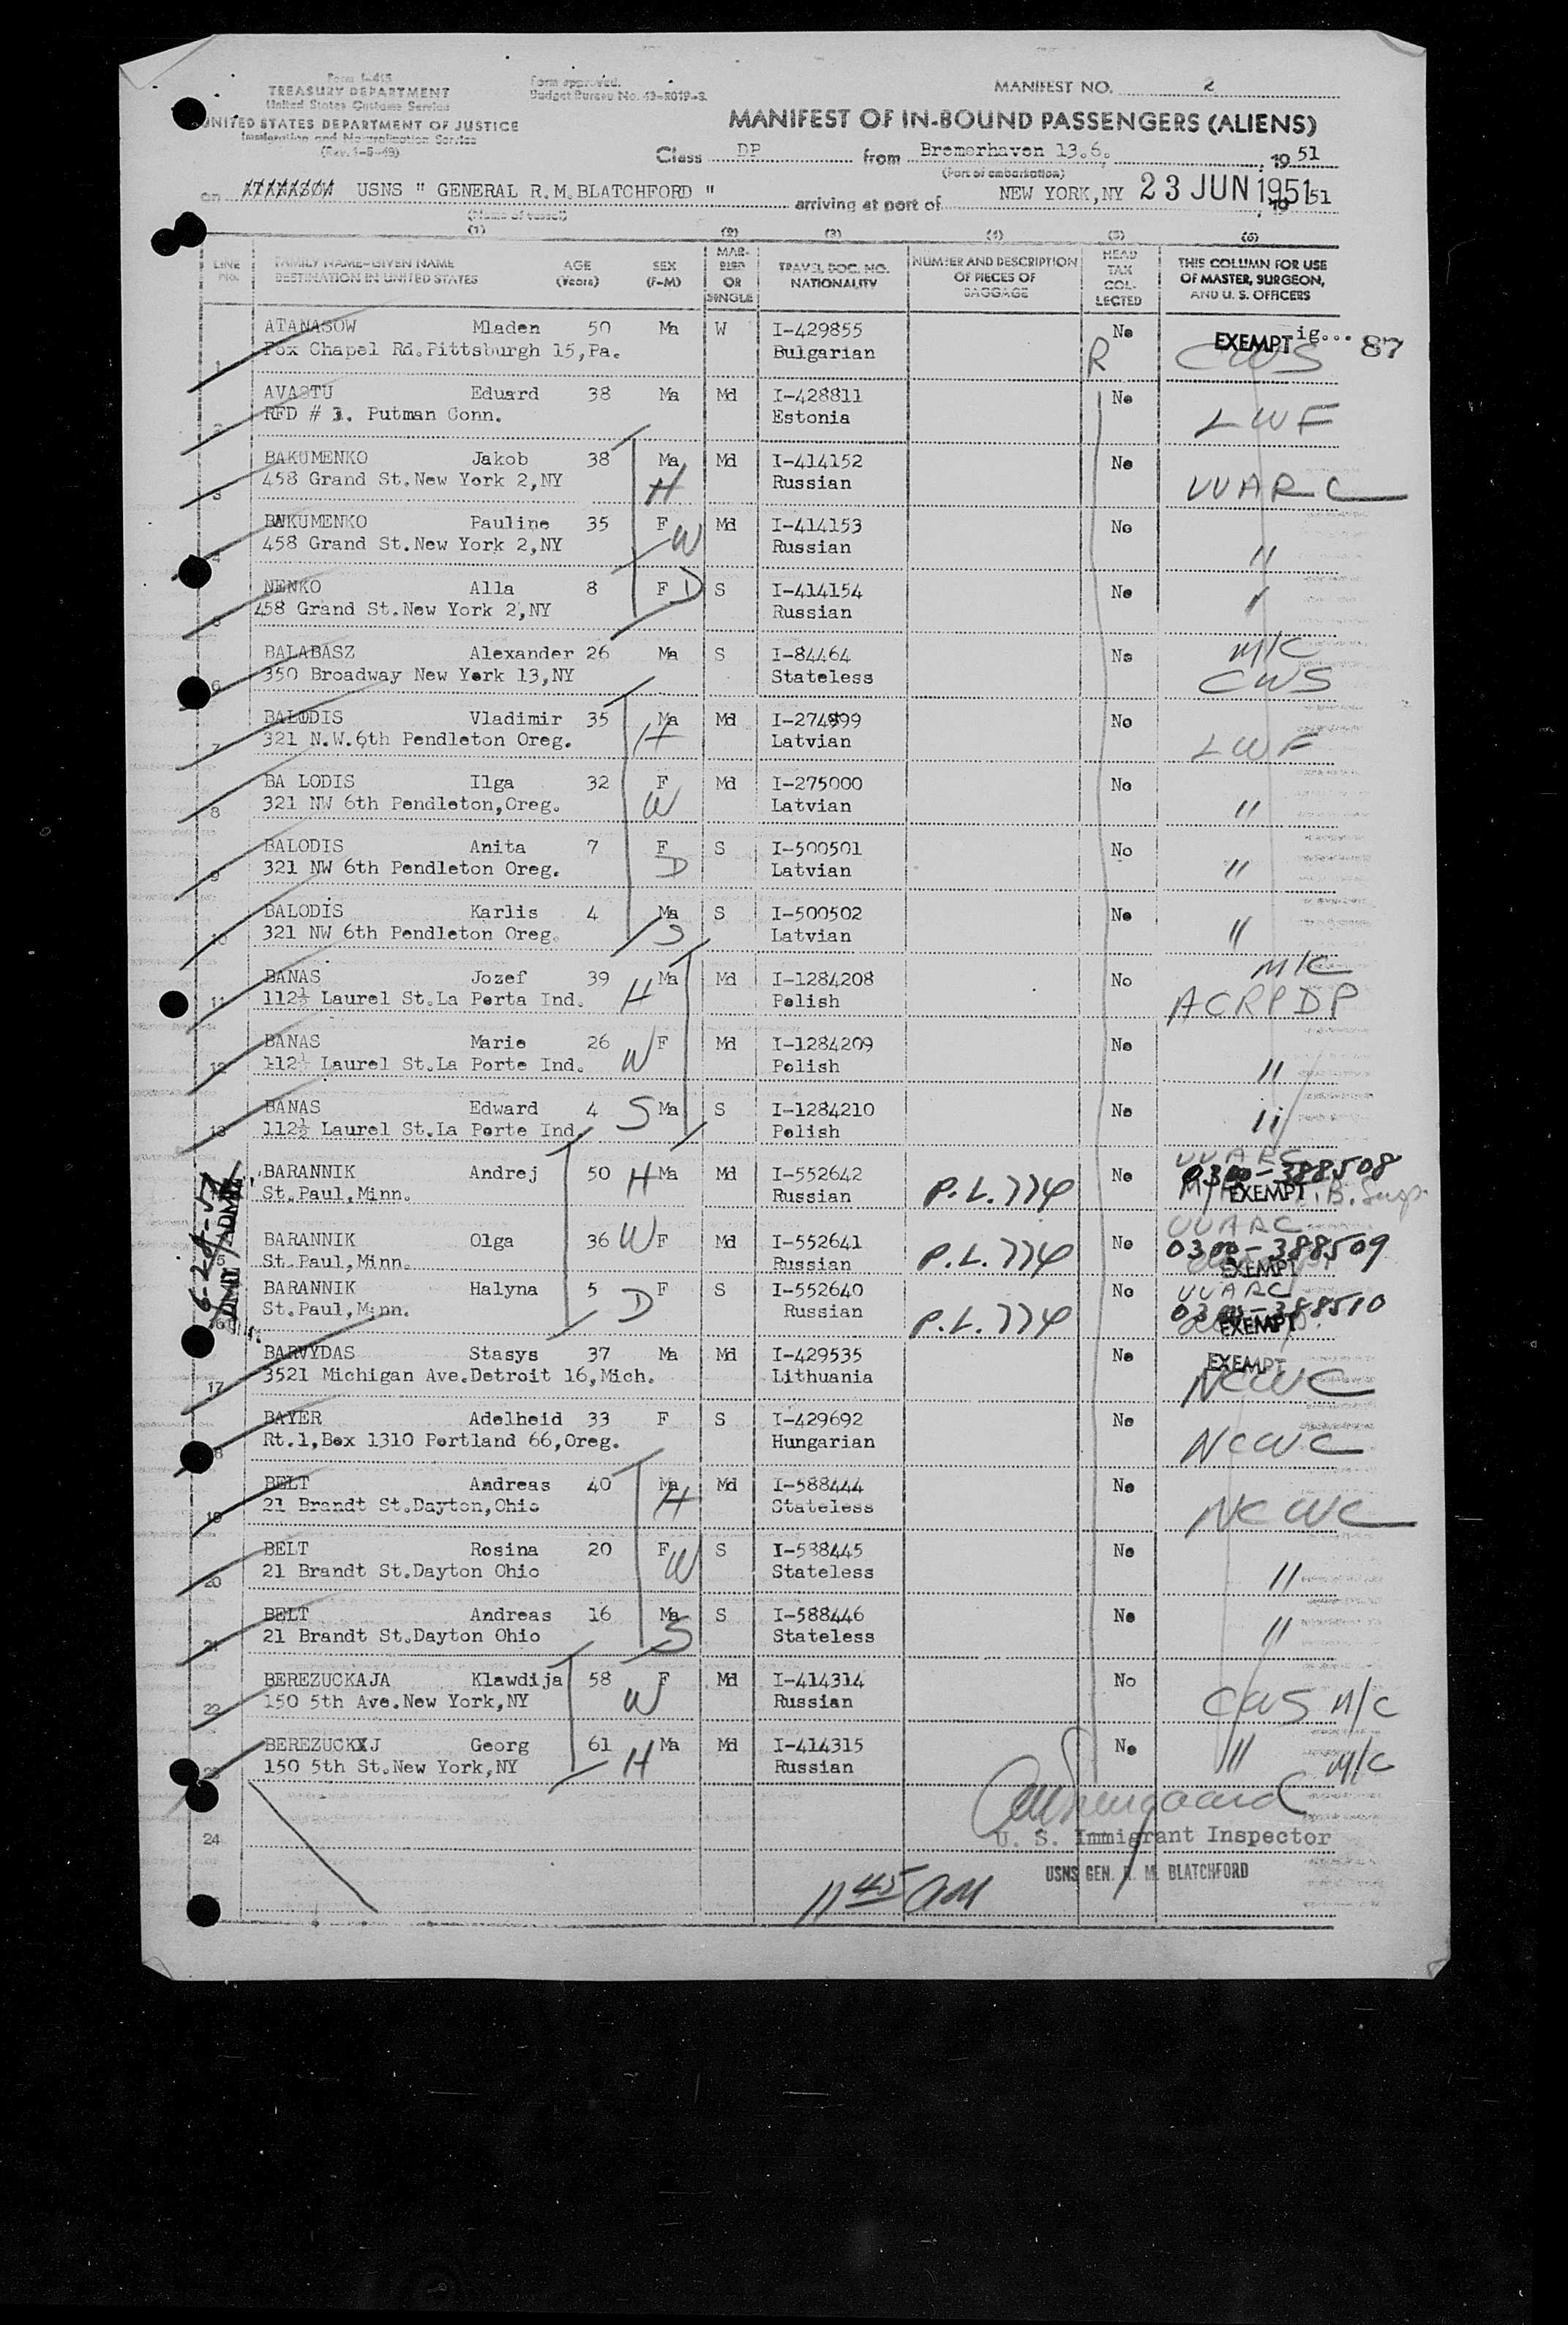 Form I-415
TREASURY DEPARTMENT
United States Customs Service
UNITED STATES DEPARTMENT OF JUSTICE
Immigration and Naturalization Service
(Rev. 1-5-49)
Form approved.
Budget Bureau No. 43-R019-3.
MANIFEST NO. 2
MANIFEST OF IN-BOUND PASSENGERS (ALIENS)
Class DP from Bremerhaven 13.6. , 19 51
(Port of embarkation)
on USNS " GENERAL R.M.BLATCHFORD " arriving at port of NEW YORK,NY 23 JUN 1951 , 19 51
(Name of vessel)
(1) (2) (3) (4) (5) (6)
LINE No. FAMILY NAME-GIVEN NAME DESTINATION IN UNITED STATES AGE (Years) SEX (F-M) MARRIED OR SINGLE TRAVEL DOC. NO. NATIONALITY NUMBER AND DESCRIPTION OF PIECES OF BAGGAGE HEAD TAX COLLECTED THIS COLUMN FOR USE OF MASTER, SURGEON, AND U. S. OFFICERS
1 ATANASOW Mladen 50 Ma W I-429855 No EXEMPT ig... 87
Fox Chapel Rd.Pittsburgh 15,Pa. Bulgarian R CWS
2 AVASTU Eduard 38 Ma Md I-428811 No
RFD # 1. Putman Conn. Estonia LWF
3 BAKUMENKO Jakob 38 Ma Md I-414152 No
458 Grand St.New York 2,NY H Russian UUARC
4 BAKUMENKO Pauline 35 F Md I-414153 No
458 Grand St.New York 2,NY W Russian "
5 NENKO Alla 8 F D S I-414154 No
458 Grand St.New York 2,NY Russian "
6 BALABASZ Alexander 26 Ma S I-84464 No M/C
350 Broadway New York 13,NY Stateless CWS
7 BALODIS Vladimir 35 Ma Md I-274999 No
321 N.W.6th Pendleton Oreg. H Latvian LWF
8 BA LODIS Ilga 32 F Md I-275000 No
321 NW 6th Pendleton,Oreg. W Latvian "
9 BALODIS Anita 7 F S I-500501 No
321 NW 6th Pendleton Oreg. D Latvian "
10 BALODIS Karlis 4 Ma S I-500502 No
321 NW 6th Pendleton Oreg. S Latvian "
11 BANAS Jozef 39 Ma Md I-1284208 No M/C
112½ Laurel St.La Porta Ind. H Polish ACRPDP
12 BANAS Marie 26 F Md I-1284209 No
112½ Laurel St.La Porte Ind. W Polish "
13 BANAS Edward 4 S Ma S I-1284210 No
112½ Laurel St.La Porte Ind. Polish "
BARANNIK Andrej 50 H Ma Md I-552642 No UUARC 0300-388508
St.Paul,Minn. Russian P.L.774 EXEMPT
15 BARANNIK Olga 36 W F Md I-552641 No UUARC 0300-388509
St.Paul,Minn. Russian P.L.774 EXEMPT
16 BARANNIK Halyna 5 F S I-552640 No UUARC 0300-388510
St.Paul,Minn. D Russian P.L.774 EXEMPT
17 BARVYDAS Stasys 37 Ma Md I-429535 No EXEMPT
3521 Michigan Ave.Detroit 16,Mich. Lithuania NCWC
18 BAYER Adelheid 33 F S I-429692 No
Rt.1,Box 1310 Portland 66,Oreg. Hungarian NCWC
19 BELT Andreas 40 Ma Md I-588444 No
21 Brandt St.Dayton,Ohio H Stateless NCWC
20 BELT Rosina 20 F S I-588445 No
21 Brandt St.Dayton Ohio W Stateless "
21 BELT Andreas 16 Ma S I-588446 No
21 Brandt St.Dayton Ohio S Stateless "
22 BEREZUCKAJA Klawdija 58 F Md I-414314 No
150 5th Ave.New York,NY W Russian CWS M/C
23 BEREZUCKXJ Georg 61 Ma Md I-414315 No
150 5th St.New York,NY H Russian " M/C
24 U. S. Immigrant Inspector
USNS GEN. R. M. BLATCHFORD
11 45 AM